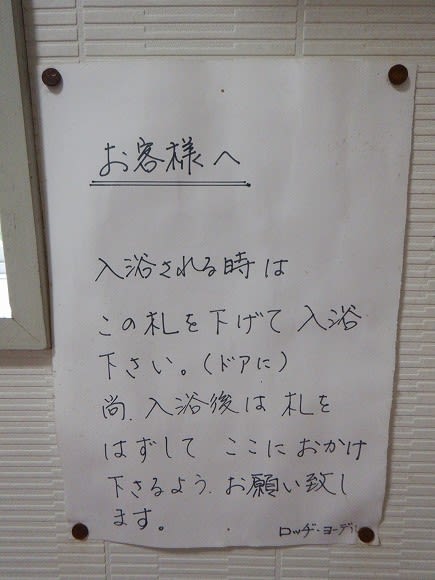 お客様へ
入浴される時は
この札を下げて入浴
下さい。(ドアに)
尚、入浴後は札を
はずして ここにおかけ
下さるよう、お願い致し
ます。
ロッヂ・ヨーデル